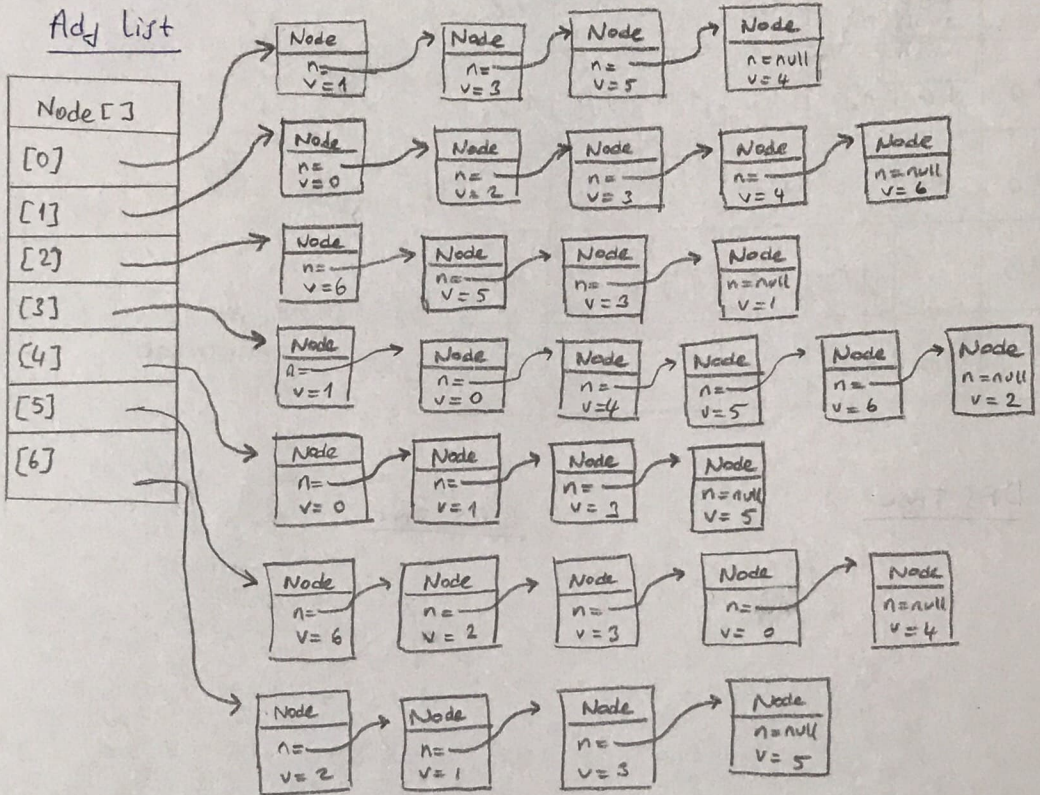 Adj list
Node[]
[0]
[1]
[2]
[3]
[4]
[5]
[6]
Node
n=
v=1
Node
n=
v=3
Node
n=
v=5
Node
n=null
v=4
Node
n=
v=0
Node
n=
v=2
Node
n=
v=3
Node
n=
v=4
Node
n=null
v=6
Node
n=
v=6
Node
n=
v=5
Node
n=
v=3
Node
n=null
v=1
Node
n=
v=1
Node
n=
v=0
Node
n=
v=4
Node
n=
v=5
Node
n=
v=6
Node
n=null
v=2
Node
n=
v=0
Node
n=
v=1
Node
n=
v=3
Node
n=null
v=5
Node
n=
v=6
Node
n=
v=2
Node
n=
v=3
Node
n=
v=0
Node
n=null
v=4
Node
n=
v=2
Node
n=
v=1
Node
n=
v=3
Node
n=null
v=5